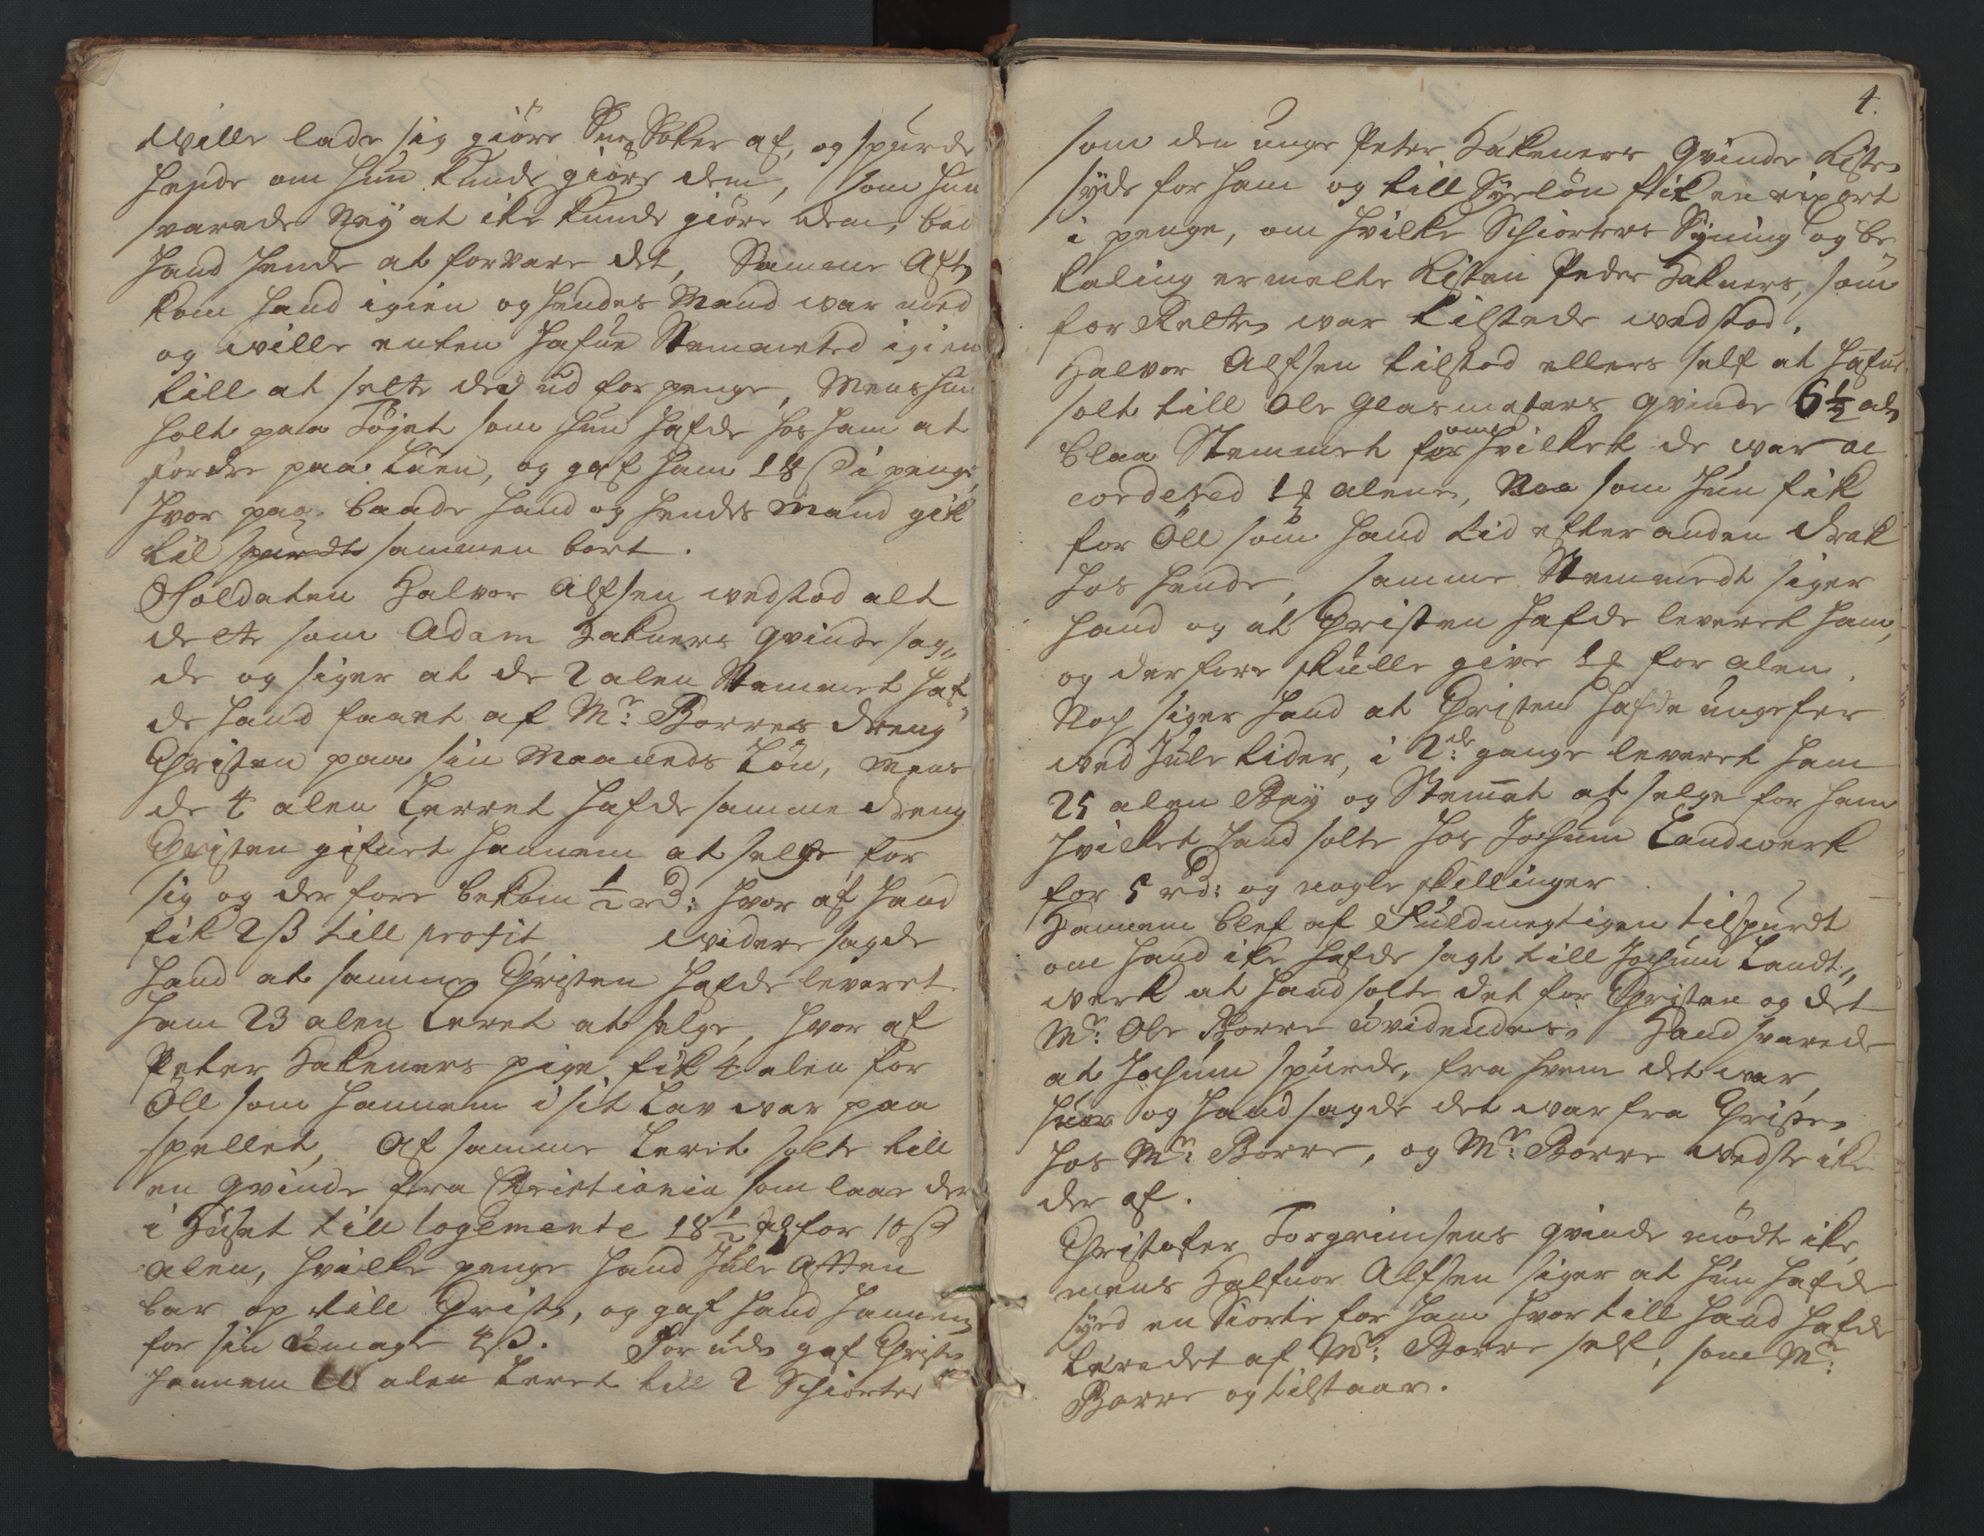 wille lade sig giöre Sneßöker af, og spurde
hende om hun kunde giöre dem, som hun
svarede Ney at ike kunde giöre dem, bad
hand hende at forvare det, Samme Afte
kom hand igien og hendes Mand war med
og wille enten hafue Stemmeted igien
till at sette ded ud for penge, Mens hun
holt paa Töjet som hun hafde hos ham at
fordre paa Luen, og gaf ham 18 ß i penge,
hvor paa baade hand og hendes Mand gik
till spurdt sammen bort.
Soldaten Halvor Alfsen wedstod alt
dette som Adam Hakners qvinde sag„
de og siger at de 2 alen Stemmet haf„
de hand faaet af Mr: Borres dreng
Christen paa sin Maaneds Lön, Mens
de 4 alen Lerret hafde samme dreng
Christen gifuet hannem at selge for
sig og der fore bekom 1/2 rd: hvor af hand
fik 2 ß till profit widere sagde
hand at samme Christen hafde leveret
ham 23 alen Leret at selge, hvor af
Peter Hakeners pige fik 4 alen for
Öll som hannem i sit Lav war paa
spellet, Af samme Leret solte till
en qvinde fra Christiania som laae der
i Huset till logemente 18 1/2 al for 10 ß
alen, hvilke penge hand Jule Aften
bar op till Christ, og gaf hand hannem
for sin Umage 4 ß. For uden gaf Christe
hannem alen Leret till 2 Schiorter
4.
som den unge Peter Hakeners Qvinde Liste
syde for ham og till Syelön fik en ripert
i penge, om hvilke Schiorters Syning og be
taling ermelte Listen Peder Hakners, som
for Retten war tilstede wedstod.
Halvor Alfsen tilstod ellers self at hafue
solt till Ole Glasmesters qvinde 6 1/2 al
blaa Stemmet for om hvilket de war ac
cordered 1 alene, Noe som hun fik
for Öll som hand tid efter anden drak
hos hende, samme Stemmedt siger
hand og at Christen hafde leveret ham,
og derfore skulle give 1 for alen.
Noch siger hand at Christen hafde ungefer
wed Jule tider, i 2de gange leveret ham
25 alen Bay og Stemet at selge for ham
hvilket hand solte hos Jochum Landwerk
for 5 rd: og nogle skillinger
Hannem blef af Fuldmegtigen tilspurdt
om hand ike hafde sagt till Jochum Landt„
werk at hand solte det for Christen og det
Mr: Ole Borre Uvidendes. Hand svarede
at Jochum spurde, fra hvem det war,
hun og hand sagde det war fra Christe
hos Mr: Borre, og Mr: Borre wedste ike
der af.
Christofer Torgrimsens qvinde mödte ike,
mens Halfuor Alfsen siger at hun hafde
syed en Siorte for ham hvor till hand hafde
Leredet af Mr: Borre self, som Mr:
Borre og tilstaar.